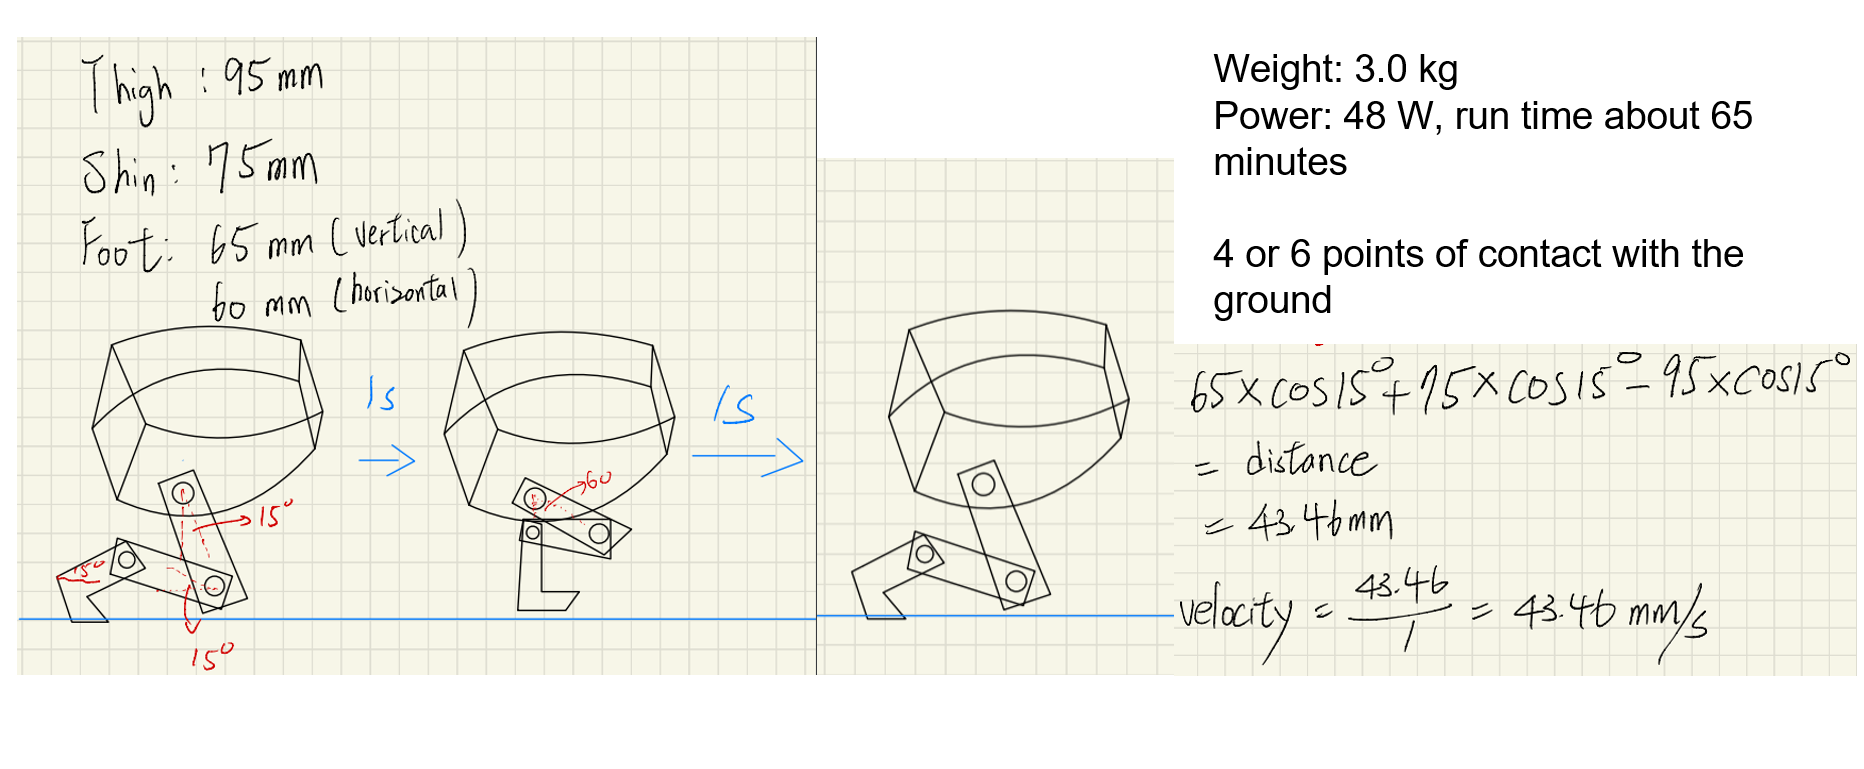 Thigh : 95 mm
Shin : 75 mm
Foot: 65 mm (vertical)
60 mm (horizontal)
1s
15°
15°
15°
60
1s
Weight: 3.0 kg
Power: 48 W, run time about 65
minutes
4 or 6 points of contact with the
ground
65×cos15°+75×cos15°-95×cos15°
= distance
= 43.46mm
velocity = 43.46/1 = 43.46 mm/s